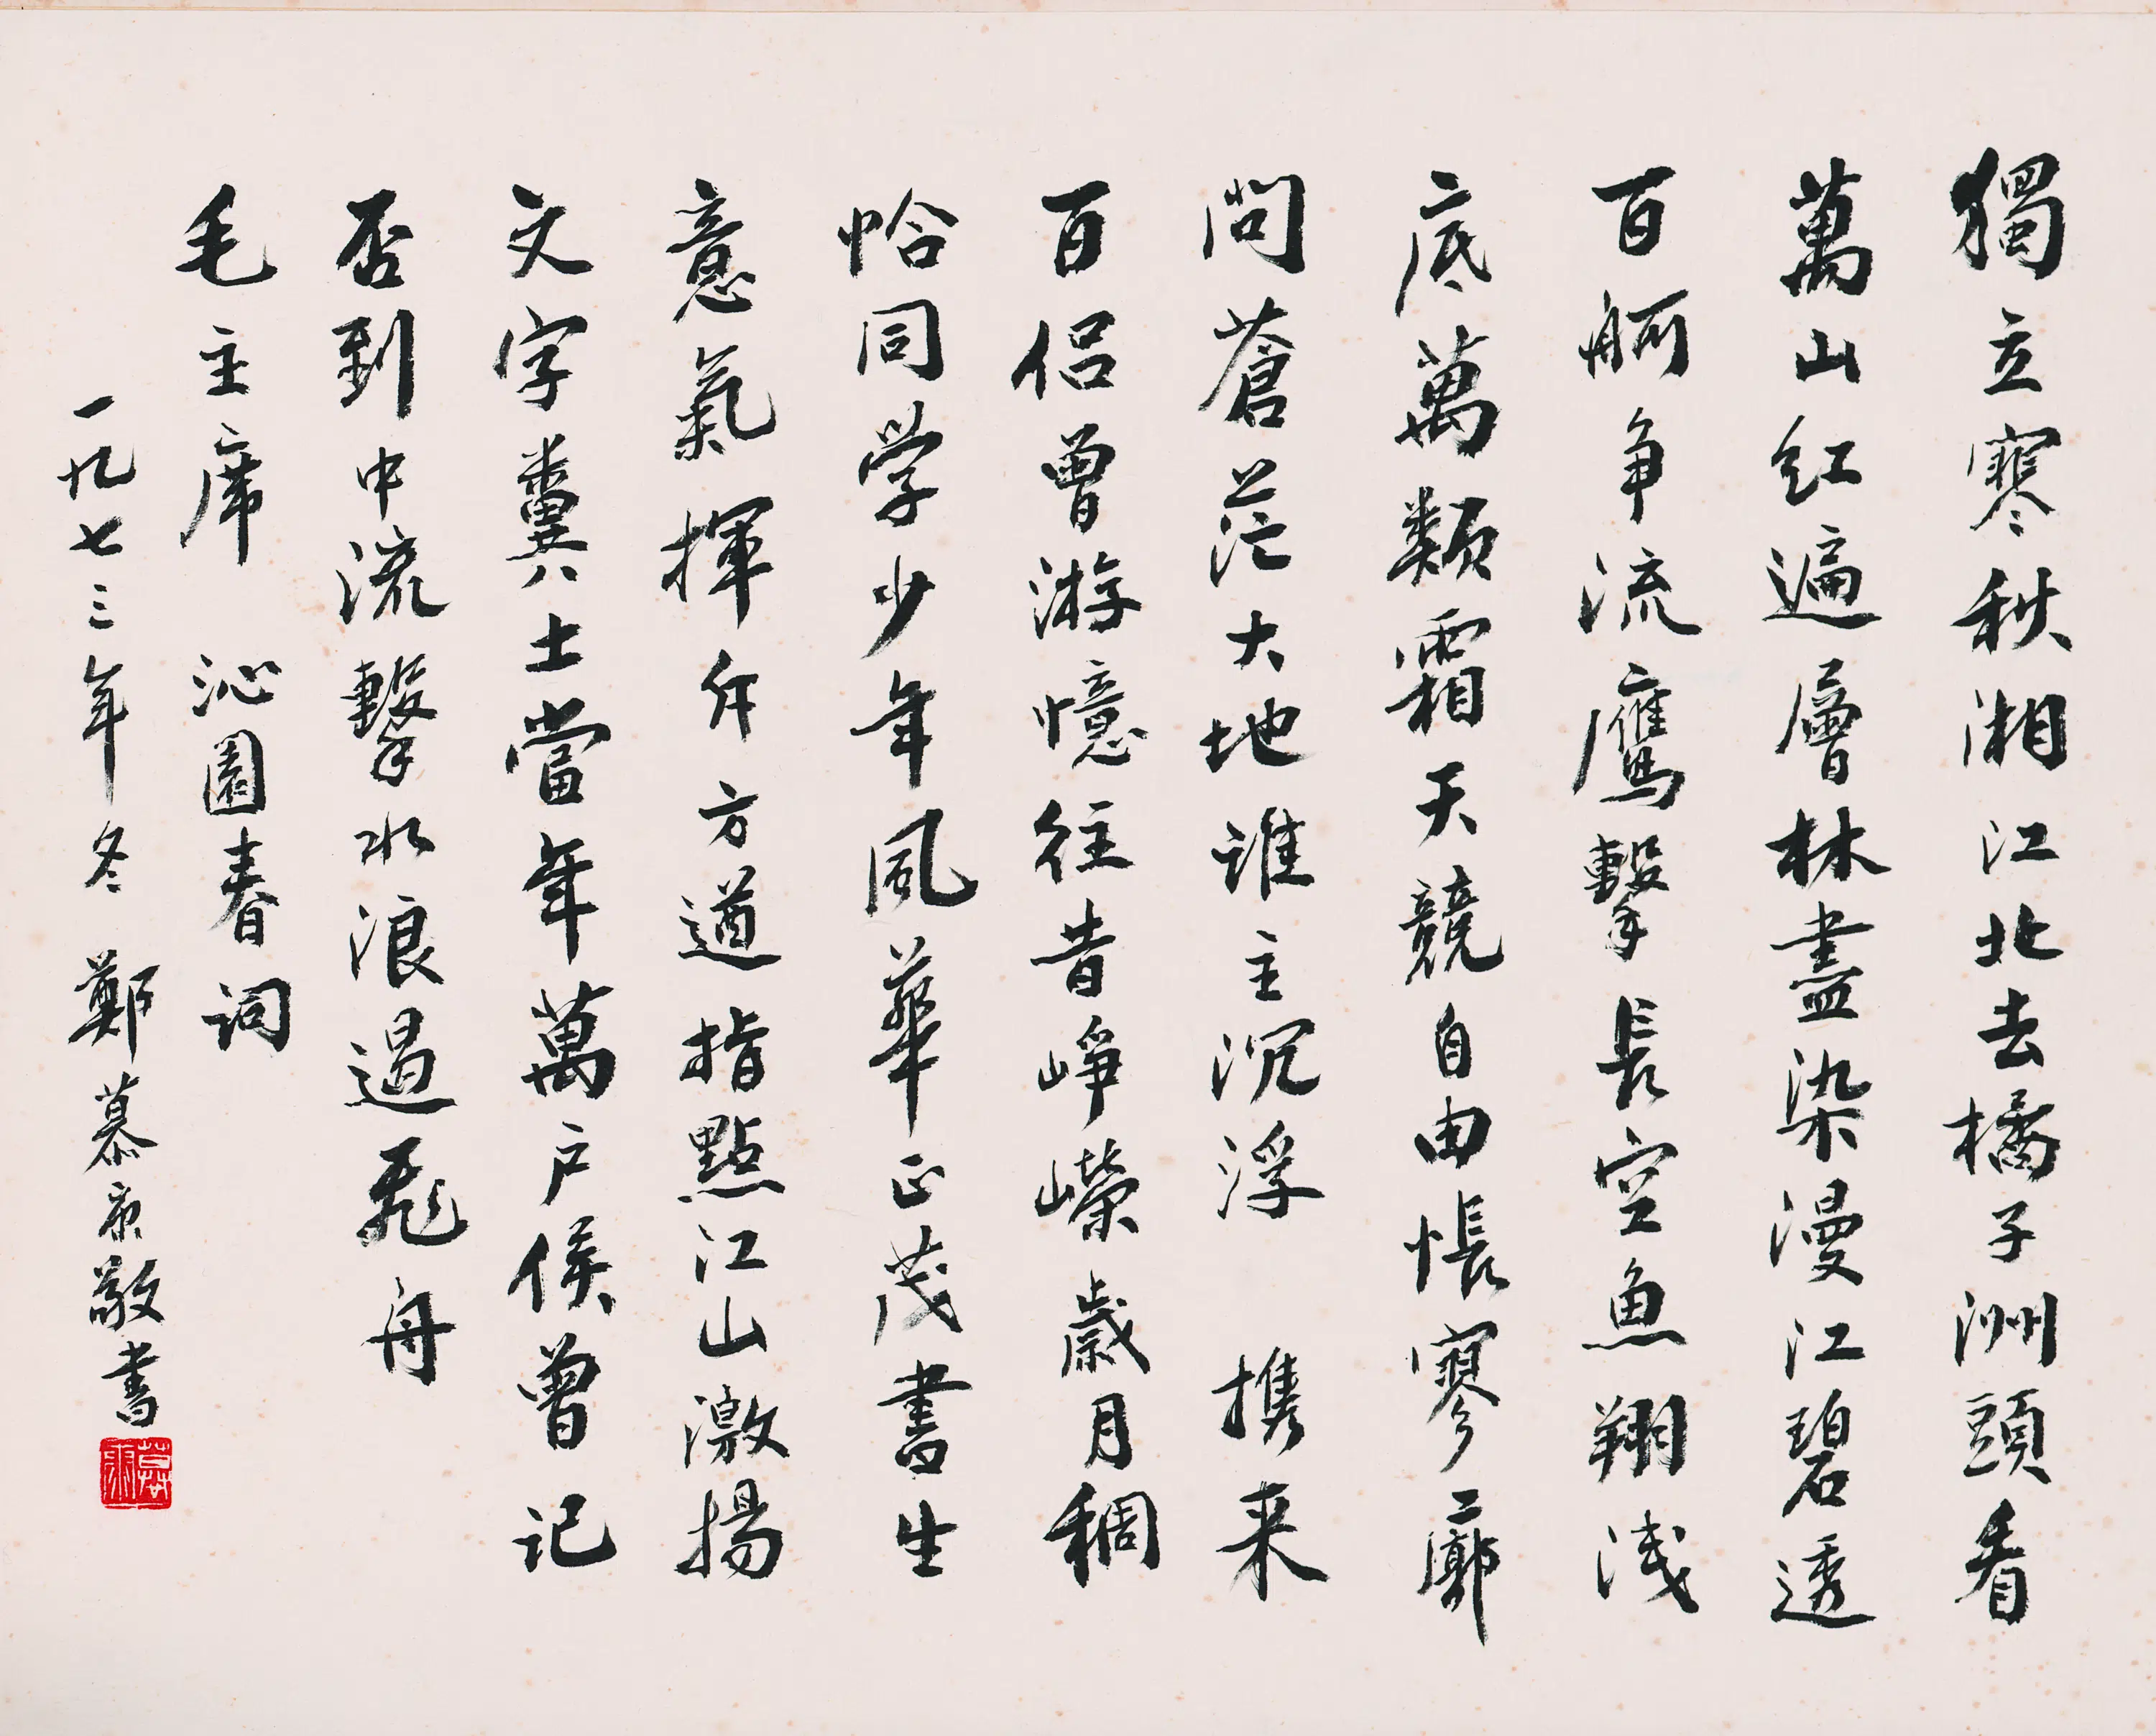 獨立寒秋湘江北去橘子洲頭看
萬山红遍層林盡染漫江碧透
百舸争流鷹擊長空魚翔浅
底萬類霜天競自由悵寥廓
問蒼茫大地谁主沉浮 携来
百侣曾游憶往昔崢嶸歲月稠
恰同学少年風華正茂書生
意氣揮斥方遒指點江山激揚
文字糞土當年萬户侯曾记
否到中流擊水浪遏飛舟
毛主席 沁園春词
一九七三年冬 鄭慕康敬書
慕康